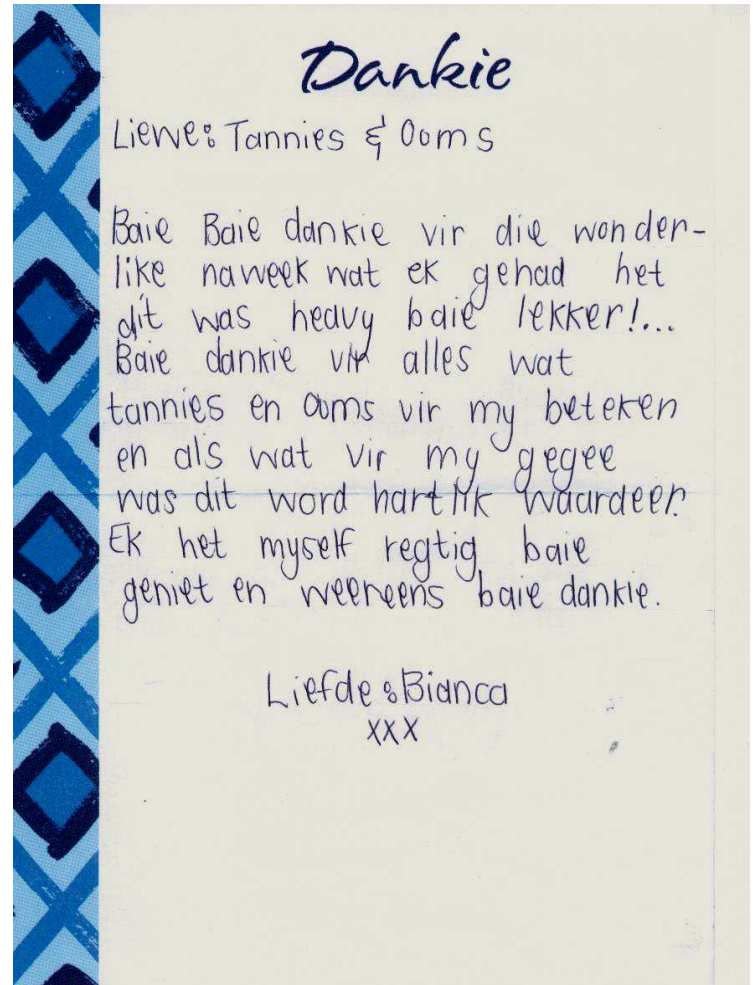 Dankie
Liewe: Tannies & Ooms
Baie Baie dankie vir die wonder-
like naweek wat ek gehad het
dit was heavy baie lekker!...
Baie dankie vir alles wat
tannies en Ooms vir my beteken
en als wat vir my gegee
was dit word hartlik waardeer.
Ek het myself regtig baie
geniet en weereens baie dankie.
Liefde: Bianca
XXX